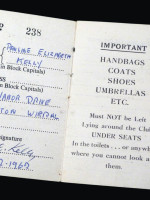 2 238
PAULINE ELIZABETH
KELLY
in Block Capitals)
SS
in Block Capitals)
MANOR DRIVE
TON WIRRAL
Signature
Kelly
1965
IMPORTANT
HANDBAGS
COATS
SHOES
UMBRELLAS
ETC.
Must NOT be Left
Lying around the Club
UNDER SEATS
In the toilets ... or anywh
where you cannot look a
them.